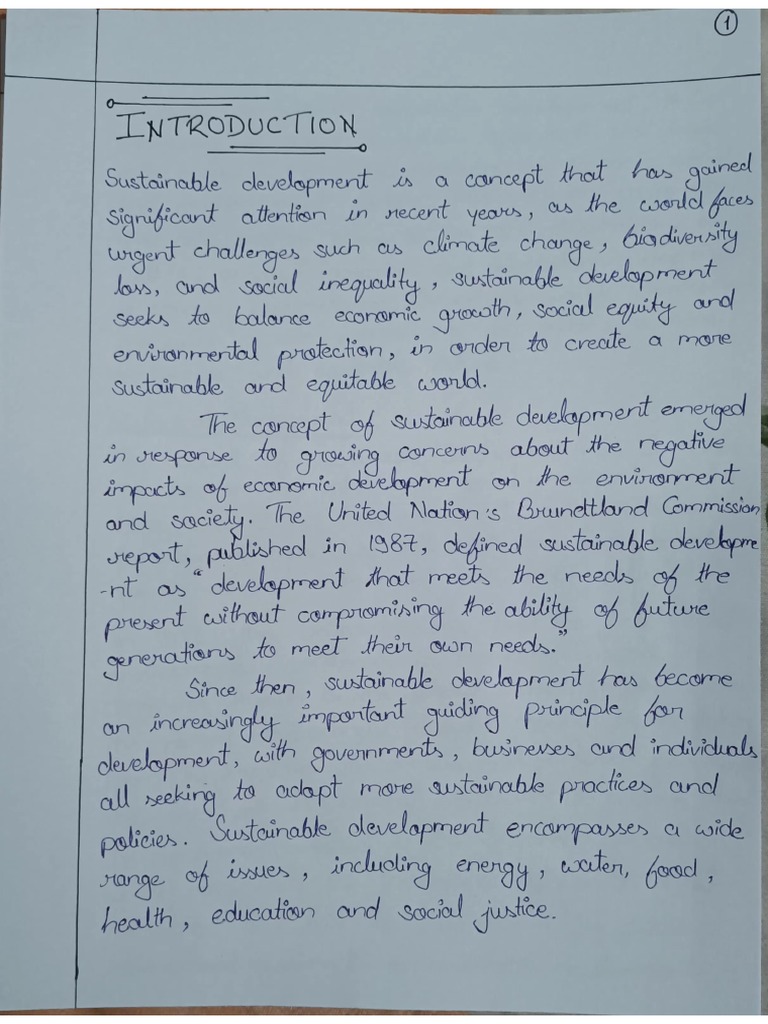 1
INTRODUCTION
Sustainable development is a concept that has gained
significant attention in recent years, as the world faces
urgent challenges such as climate change, biodiversity
loss, and social inequality, sustainable development
seeks to balance economic growth, social equity and
environmental protection, in order to create a more
sustainable and equitable world.
The concept of sustainable development emerged
in response to growing concerns about the negative
impacts of economic development on the environment
and society. The United Nation's Brundtland Commission
report, published in 1987, defined sustainable developme
-nt as "development that meets the needs of the
present without compromising the ability of future
generations to meet their own needs."
Since then, sustainable development has become
an increasingly important guiding principle for
development, with governments, businesses and individuals
all seeking to adopt more sustainable practices and
policies. Sustainable development encompasses a wide
range of issues, including energy, water, food,
health, education and social justice.